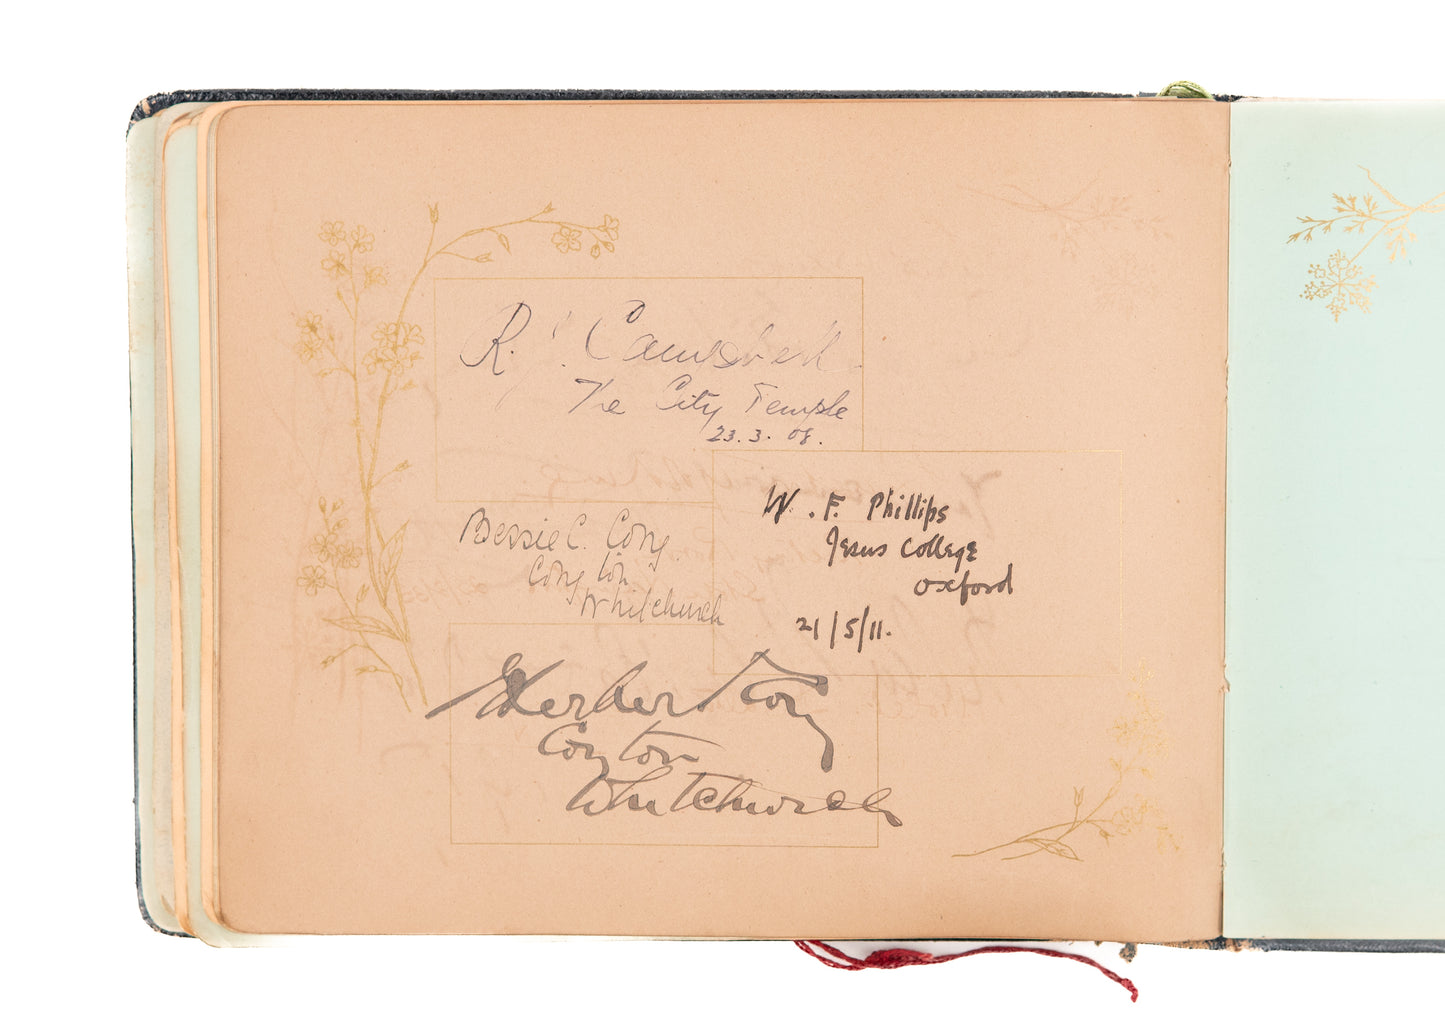 R. J. Campbell
The City Temple
23.3.08.
Bessie C. Cory.
Coryton
Whitchurch
W. F. Phillips
Jesus College
Oxford
21/5/11.
Herbert Cory
Coryton
Whitchurch